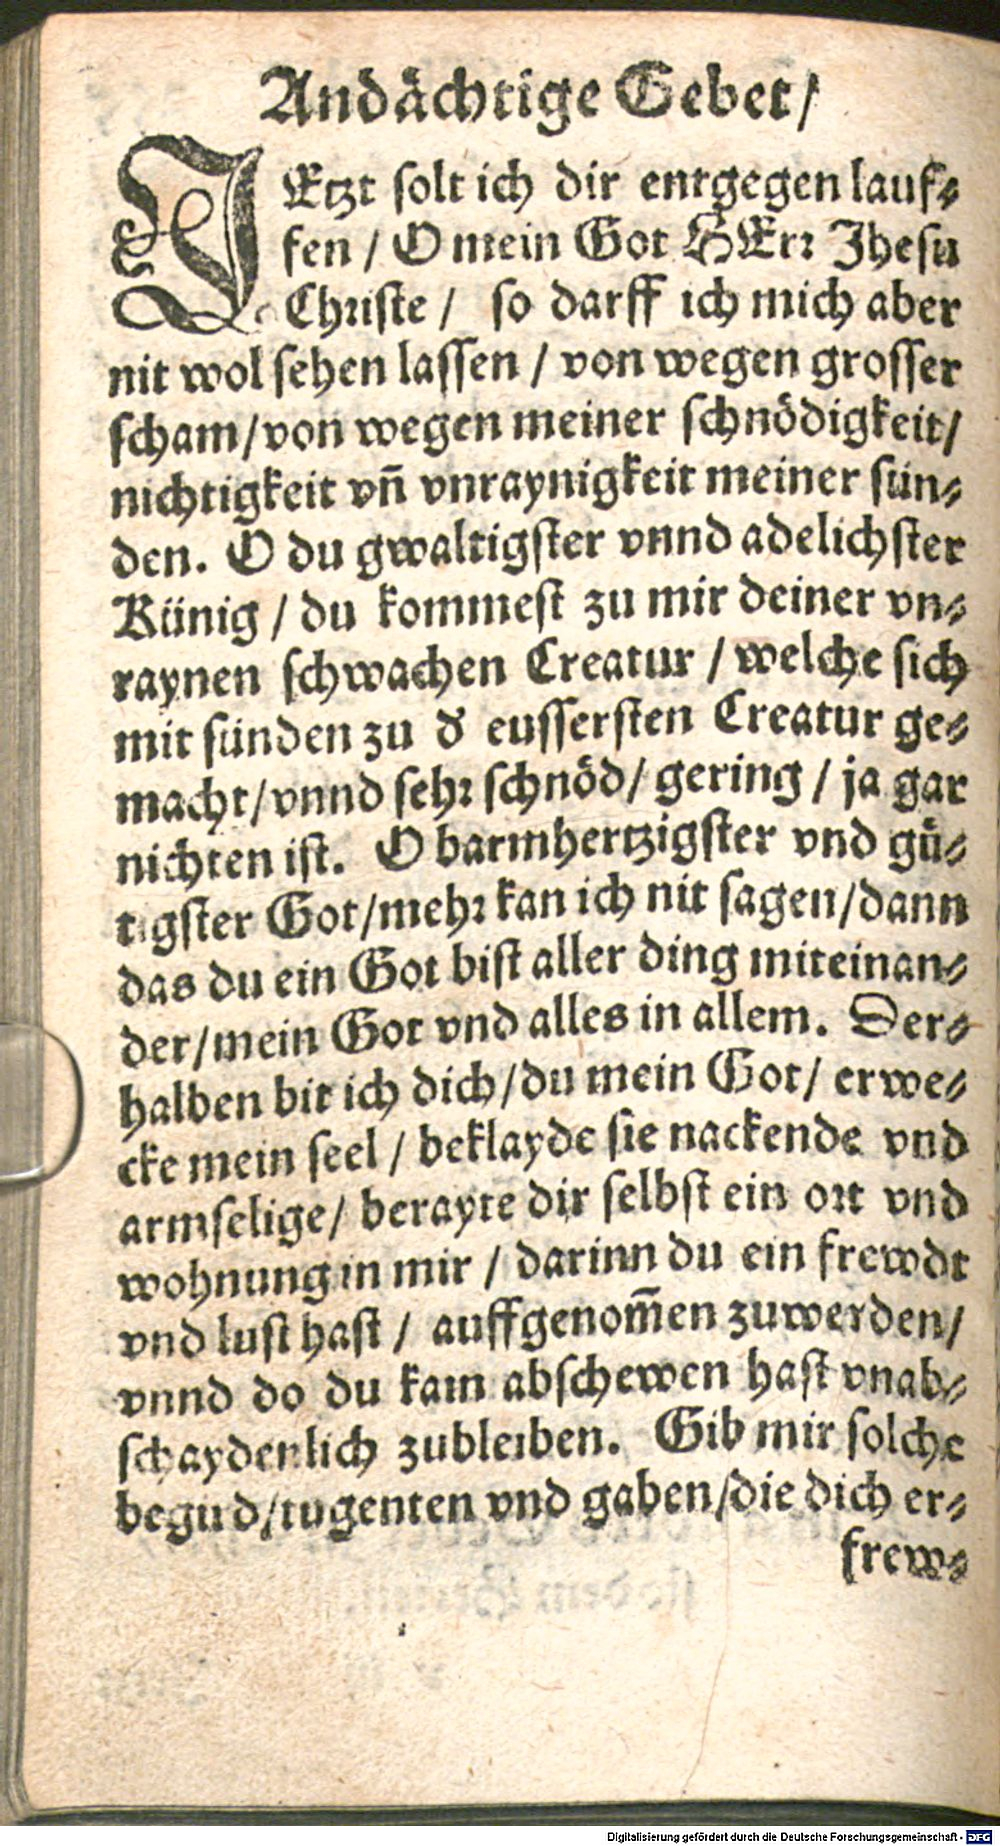 Andächtige Gebet/
JEtzt solt ich dir entgegen lauf⸗
fen / O mein Got HErr Jhesu
Christe / so darff ich mich aber
nit wol sehen lassen / von wegen grosser
scham/von wegen meiner schnödigkeit/
nichtigkeit vñ vnraynigkeit meiner sün⸗
den. O du gwaltigster vnnd adelichster
Künig / du kommest zu mir deiner vn⸗
raynen schwachen Creatur / welche sich
mit sünden zu d̕ eussersten Creatur ge⸗
macht/vnnd sehr schnöd/ gering / ja gar
nichten ist. O barmhertzigster vnd gü⸗
tigster Got/mehr kan ich nit sagen/dann
das du ein Got bist aller ding miteinan⸗
der/mein Got vnd alles in allem. Der⸗
halben bit ich dich/du mein Got/ erwe⸗
cke mein seel / beklayde sie nackende vnd
armselige/ berayte dir selbst ein ort vnd
wohnung in mir / darinn du ein frewdt
vnd lust hast / auffgenom̃en zuwerden/
vnnd do du kain abschewen hast vnab⸗
schaydenlich zubleiben. Gib mir solche
begird/tugenten vnd gaben/die dich er⸗
frew⸗
Digitalisierung gefördert durch die Deutsche Forschungsgemeinschaft - DFG